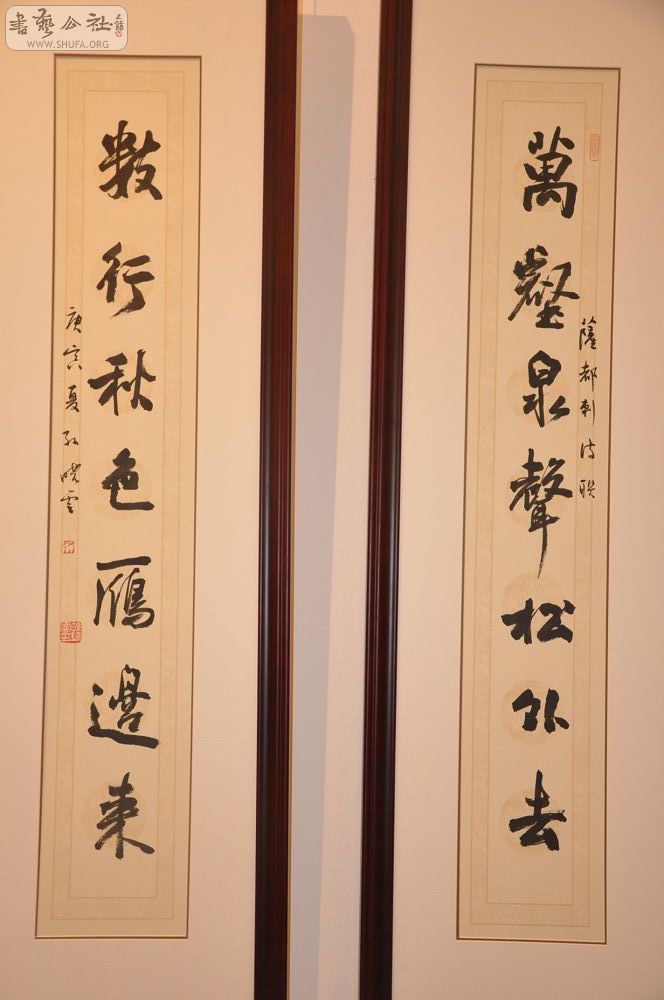 書藝公社
WWW.SHUFA.ORG
萬壑泉聲松外去
薩都剌詩聯
數行秋色雁邊來
庚寅夏孫曉雲